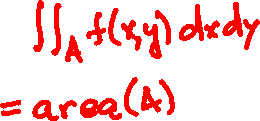 ∬_A f(x,y) dx dy
= area(A)